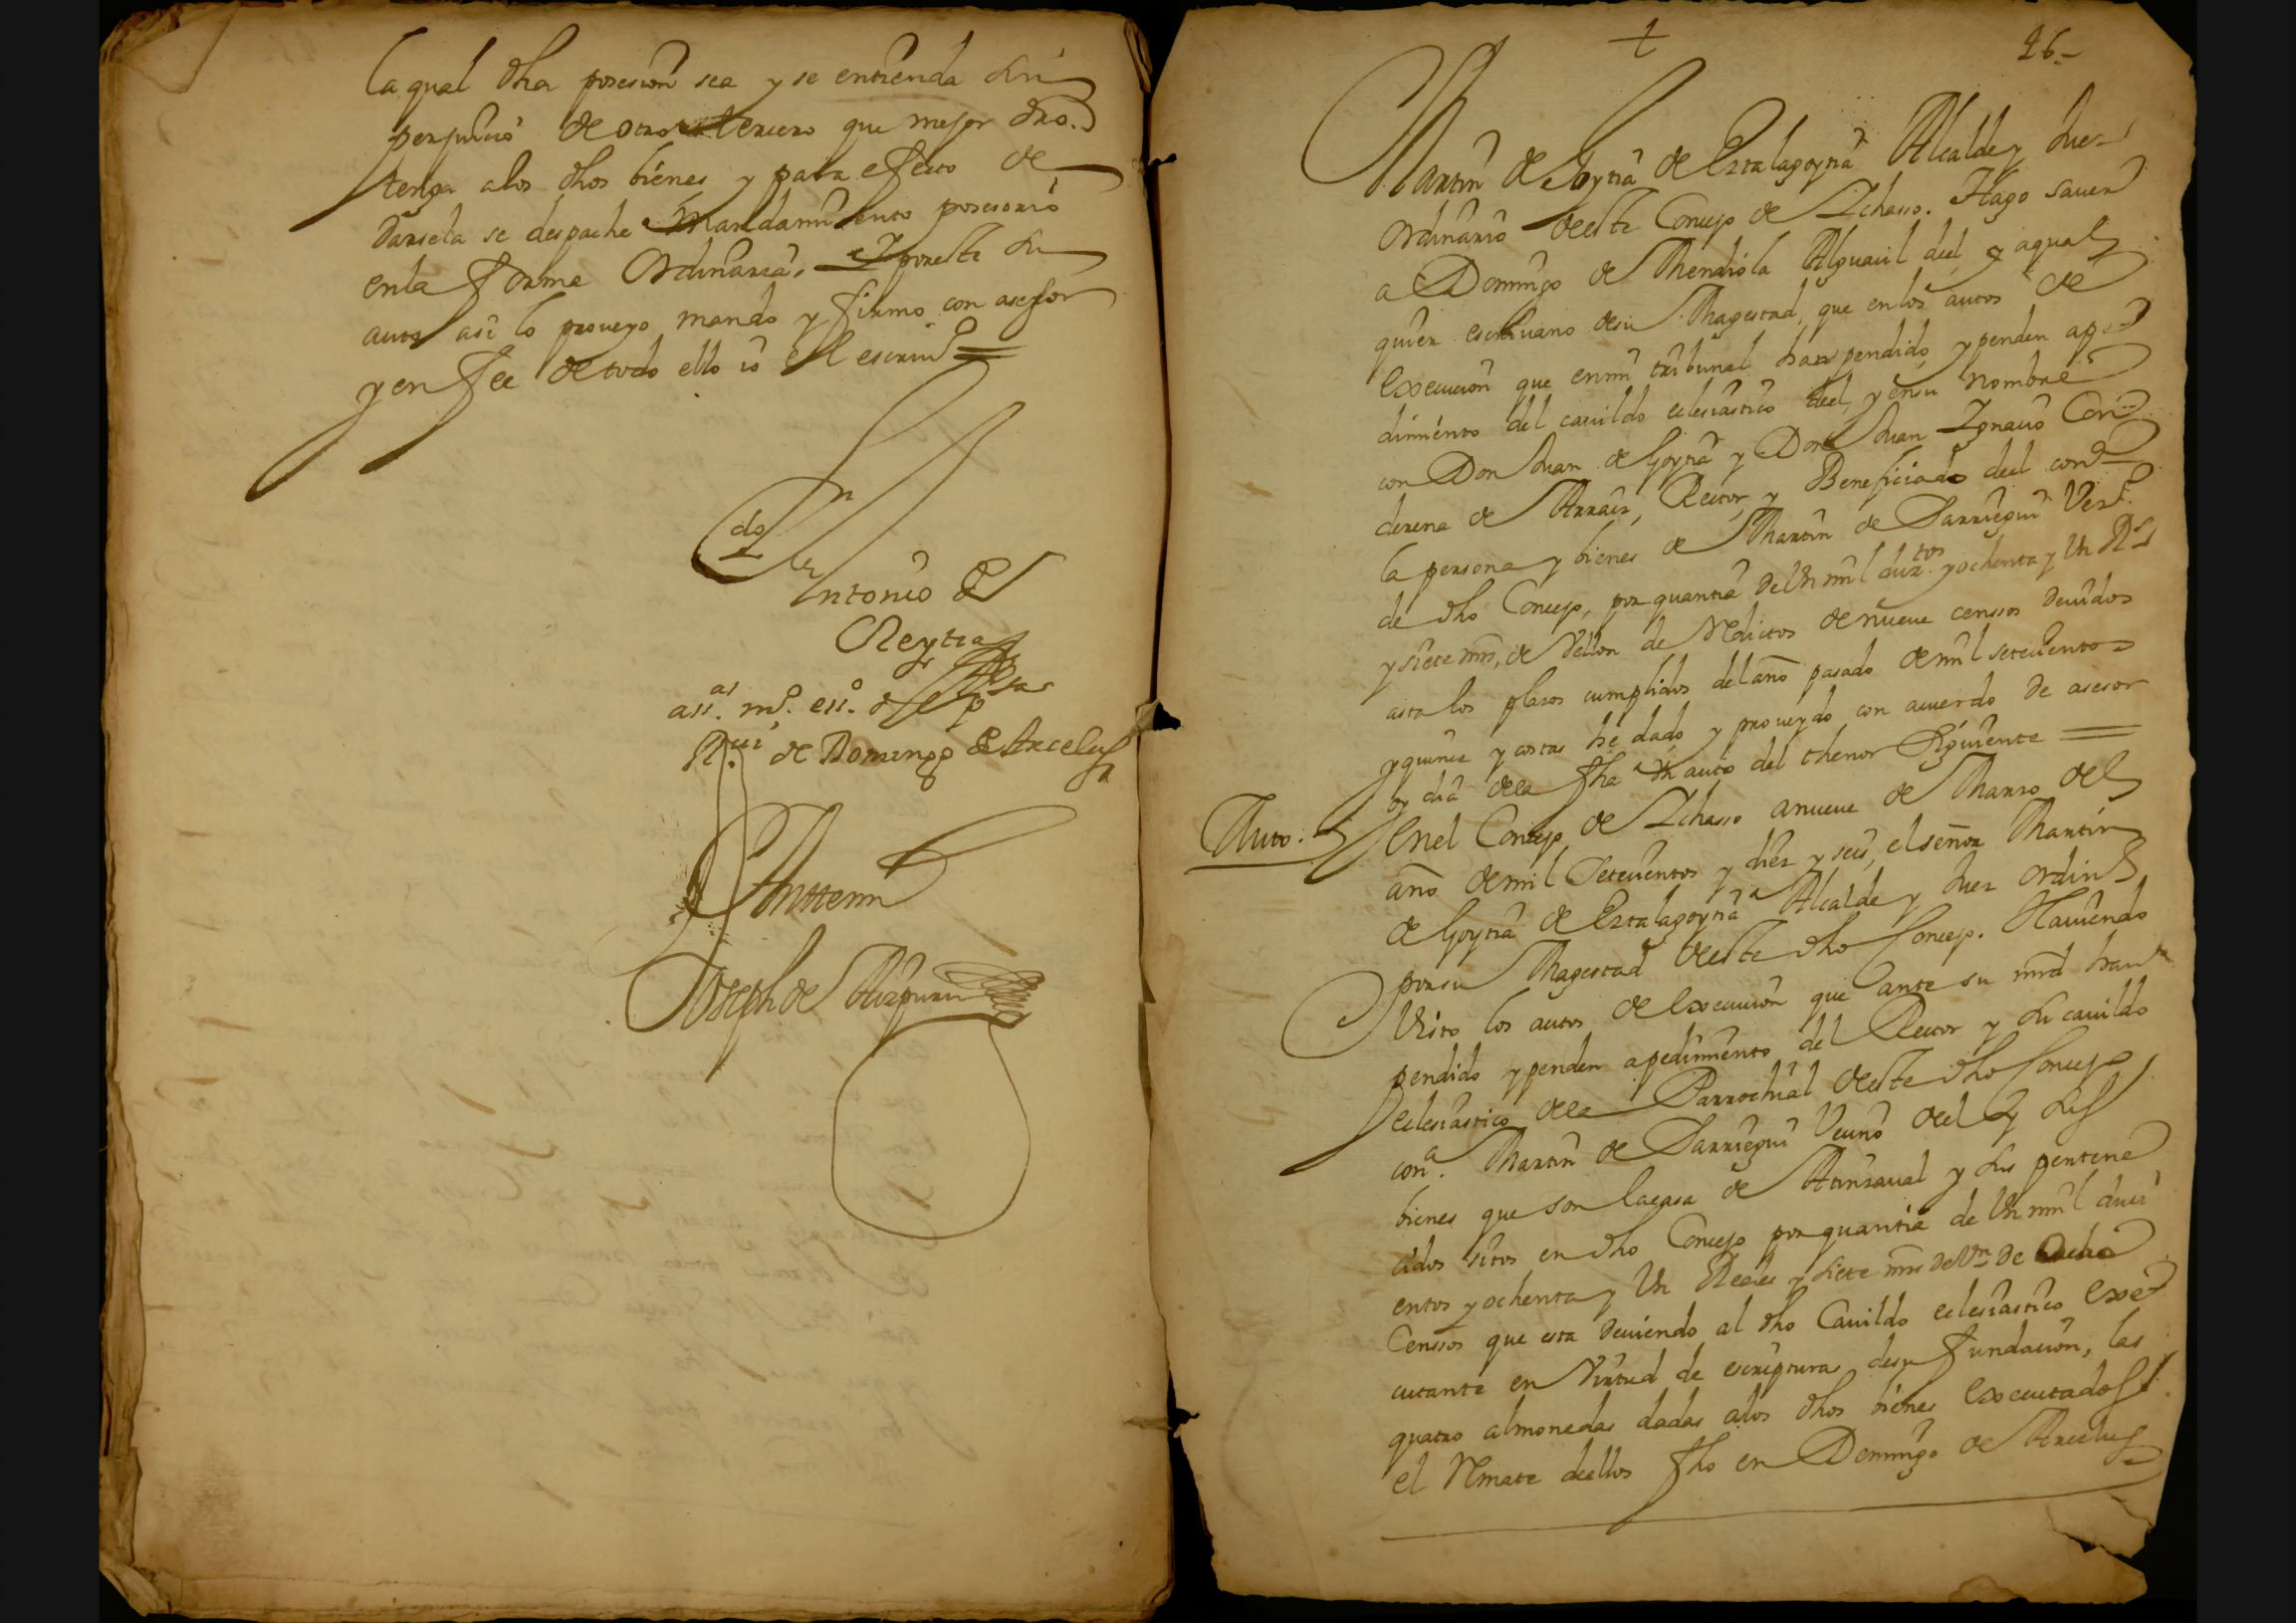 la qual dha posesion sea y se entienda sin
perjuicio de otro tercero que mejor dro.
tenga alos dhos bienes y para efecto de
darsela se despache Mandamiento posesorio
en la forma Ordinaria. Y por este su
auto asi lo proueyo mando y firmo con asesor
y en fee de todo ello io el escriuo
Antonio de
Reytia
de Domingo de Arcelus
Ante mi
Joseph de Aizpuru
26
Martin de Goytia de Eztalagoytia Alcalde y Juez
Ordinario deeste Concejo de Ichasso. Hago sauer
a Domingo de Mendiola Alguacil del, y a qual
quier escriuano desu Magestad, que en los autos de
execucion que en mi tribunal han pendido, y penden ape
dimiento del cauildo eclesiastico del, y en su nombre
con Don Juan de Goytia y Don Juan Ignacio Con
derena de Arraiz, Rector, y Beneficiado del con
la persona y bienes de Martin de Sarriegui Vezo.
de dho Concejo, por quantia de Un mil duztos. y ochenta y Un Rs
y siete mrs, de Vellon de Reditos de nueue censsos deuidos
asta los plasos cumplidos del año pasado de mil setecientos
y quince y costas he dado, y proueydo con acuerdo de asesor
oy dia dela fha Un auto del thenor Siguiente
Auto.
En el Concejo de Ichasso a nueue de Marzo del
año de mil Setecientos y diez y seis, el señor Martin
de Goytia de Eztalagoytia Alcalde y Juez ordino
por su Magestad deeste dho Concejo. Hauiendo
Visto los autos de execucion que ante su mrd han
pendido y penden a pedimiento del Rector y su cauildo
eclesiastico dela Parrochial deeste dho Concejo
cona. Martin de Sarriegui Vecino del y sus
bienes que son la casa de Aunsaual y sus pertene
cidos sitos en dho Concejo por quantia de Un mil duci
entos y ochenta y Un Reales y siete mrs de Vn de
Censsos que esta deuiendo al dho Cauildo eclesiastico exe
cutante en Virtud de escripturas desu fundacion, las
quatro almonedas dadas alos dhos bienes executados
el Remate deellos fho en Domingo de Arcelus